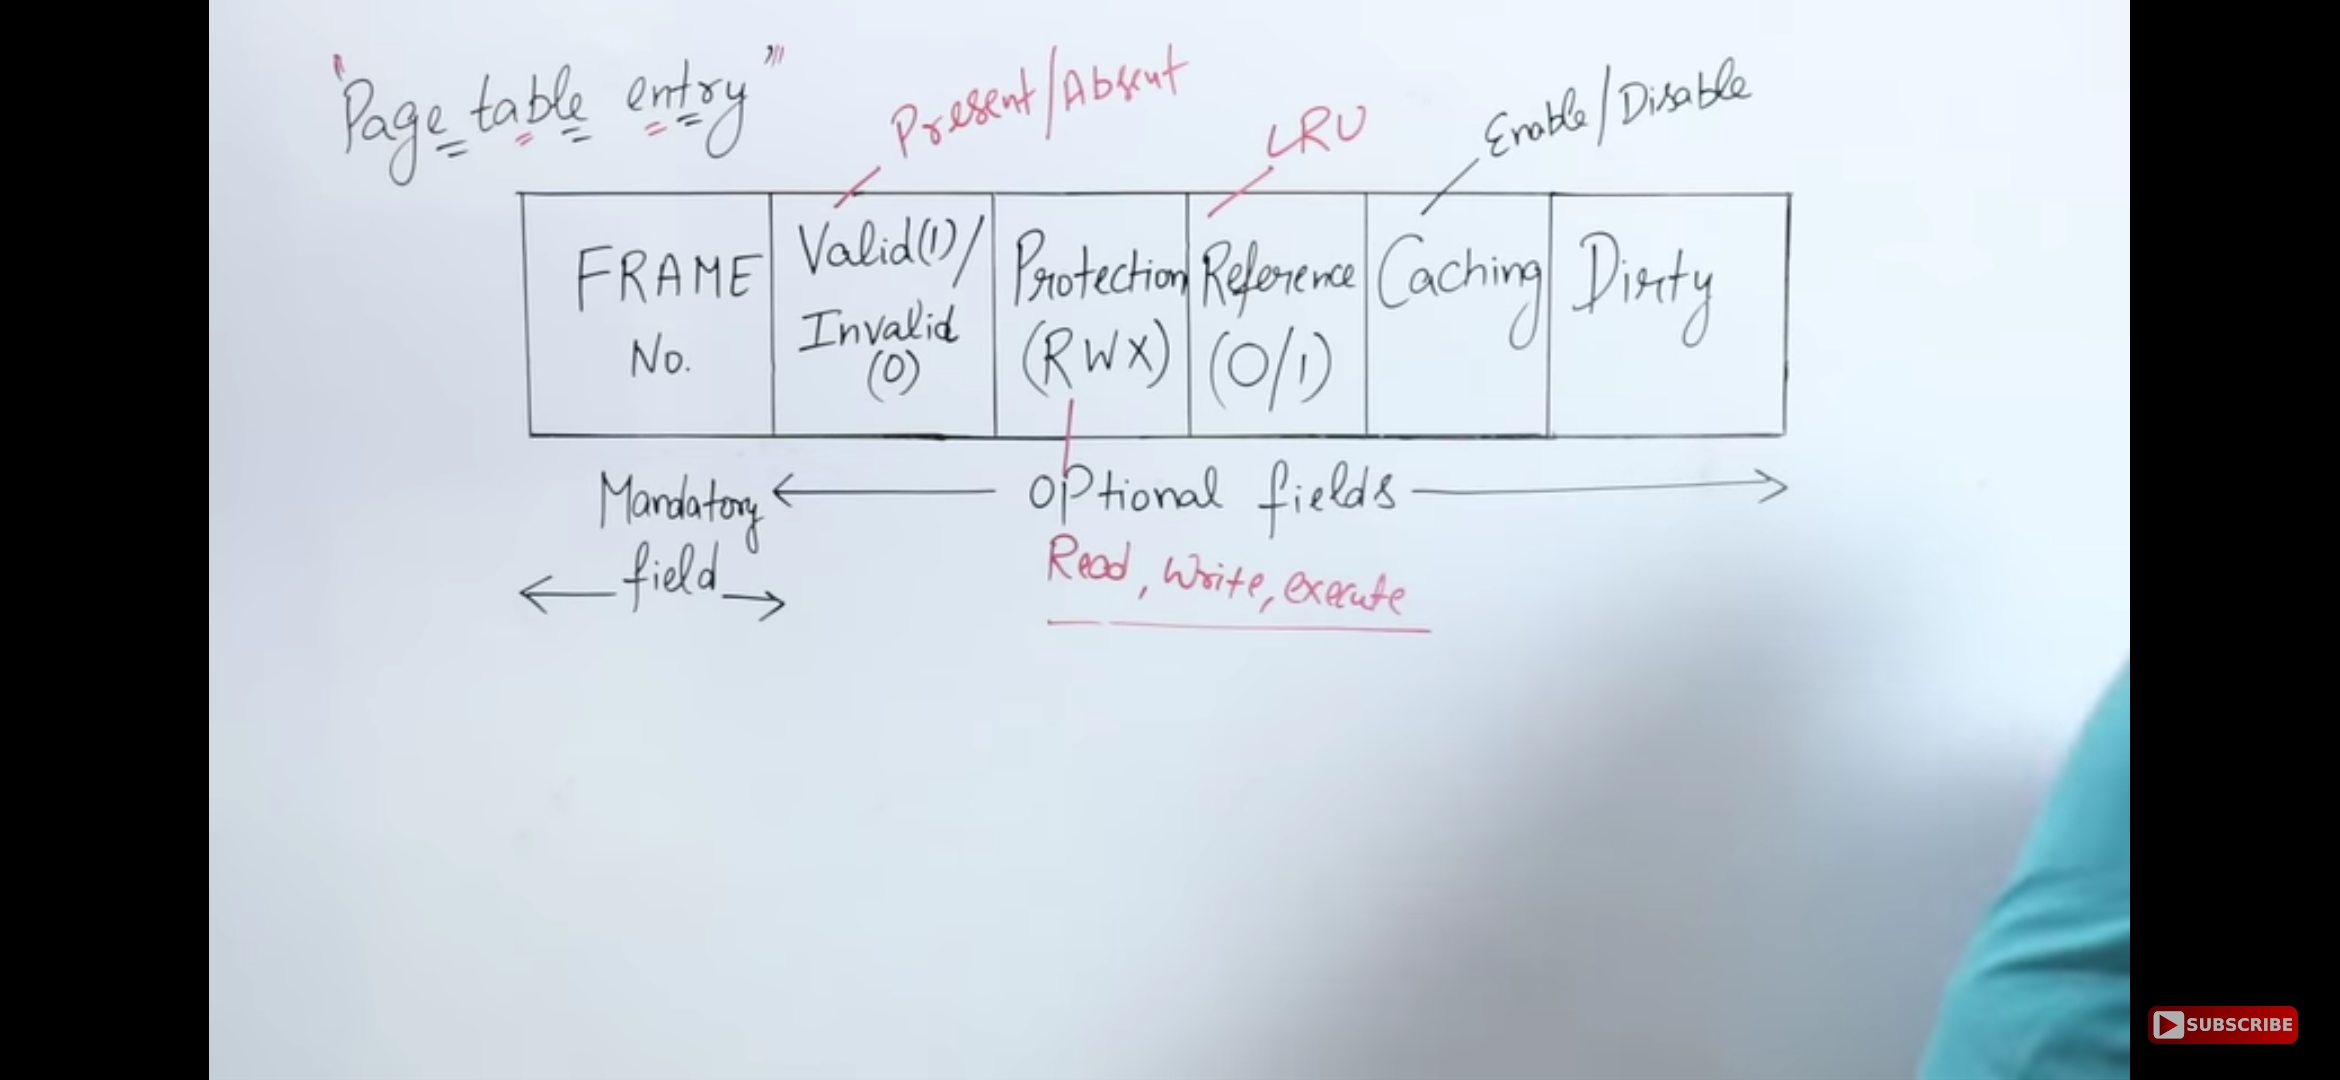 "Page table entry"
Present/Absent
LRU
Enable/Disable
FRAME No.
Valid(1)/ Invalid (0)
Protection (RWX)
Reference (0/1)
Caching
Dirty
Mandatory field
Optional fields
Read, Write, execute
SUBSCRIBE